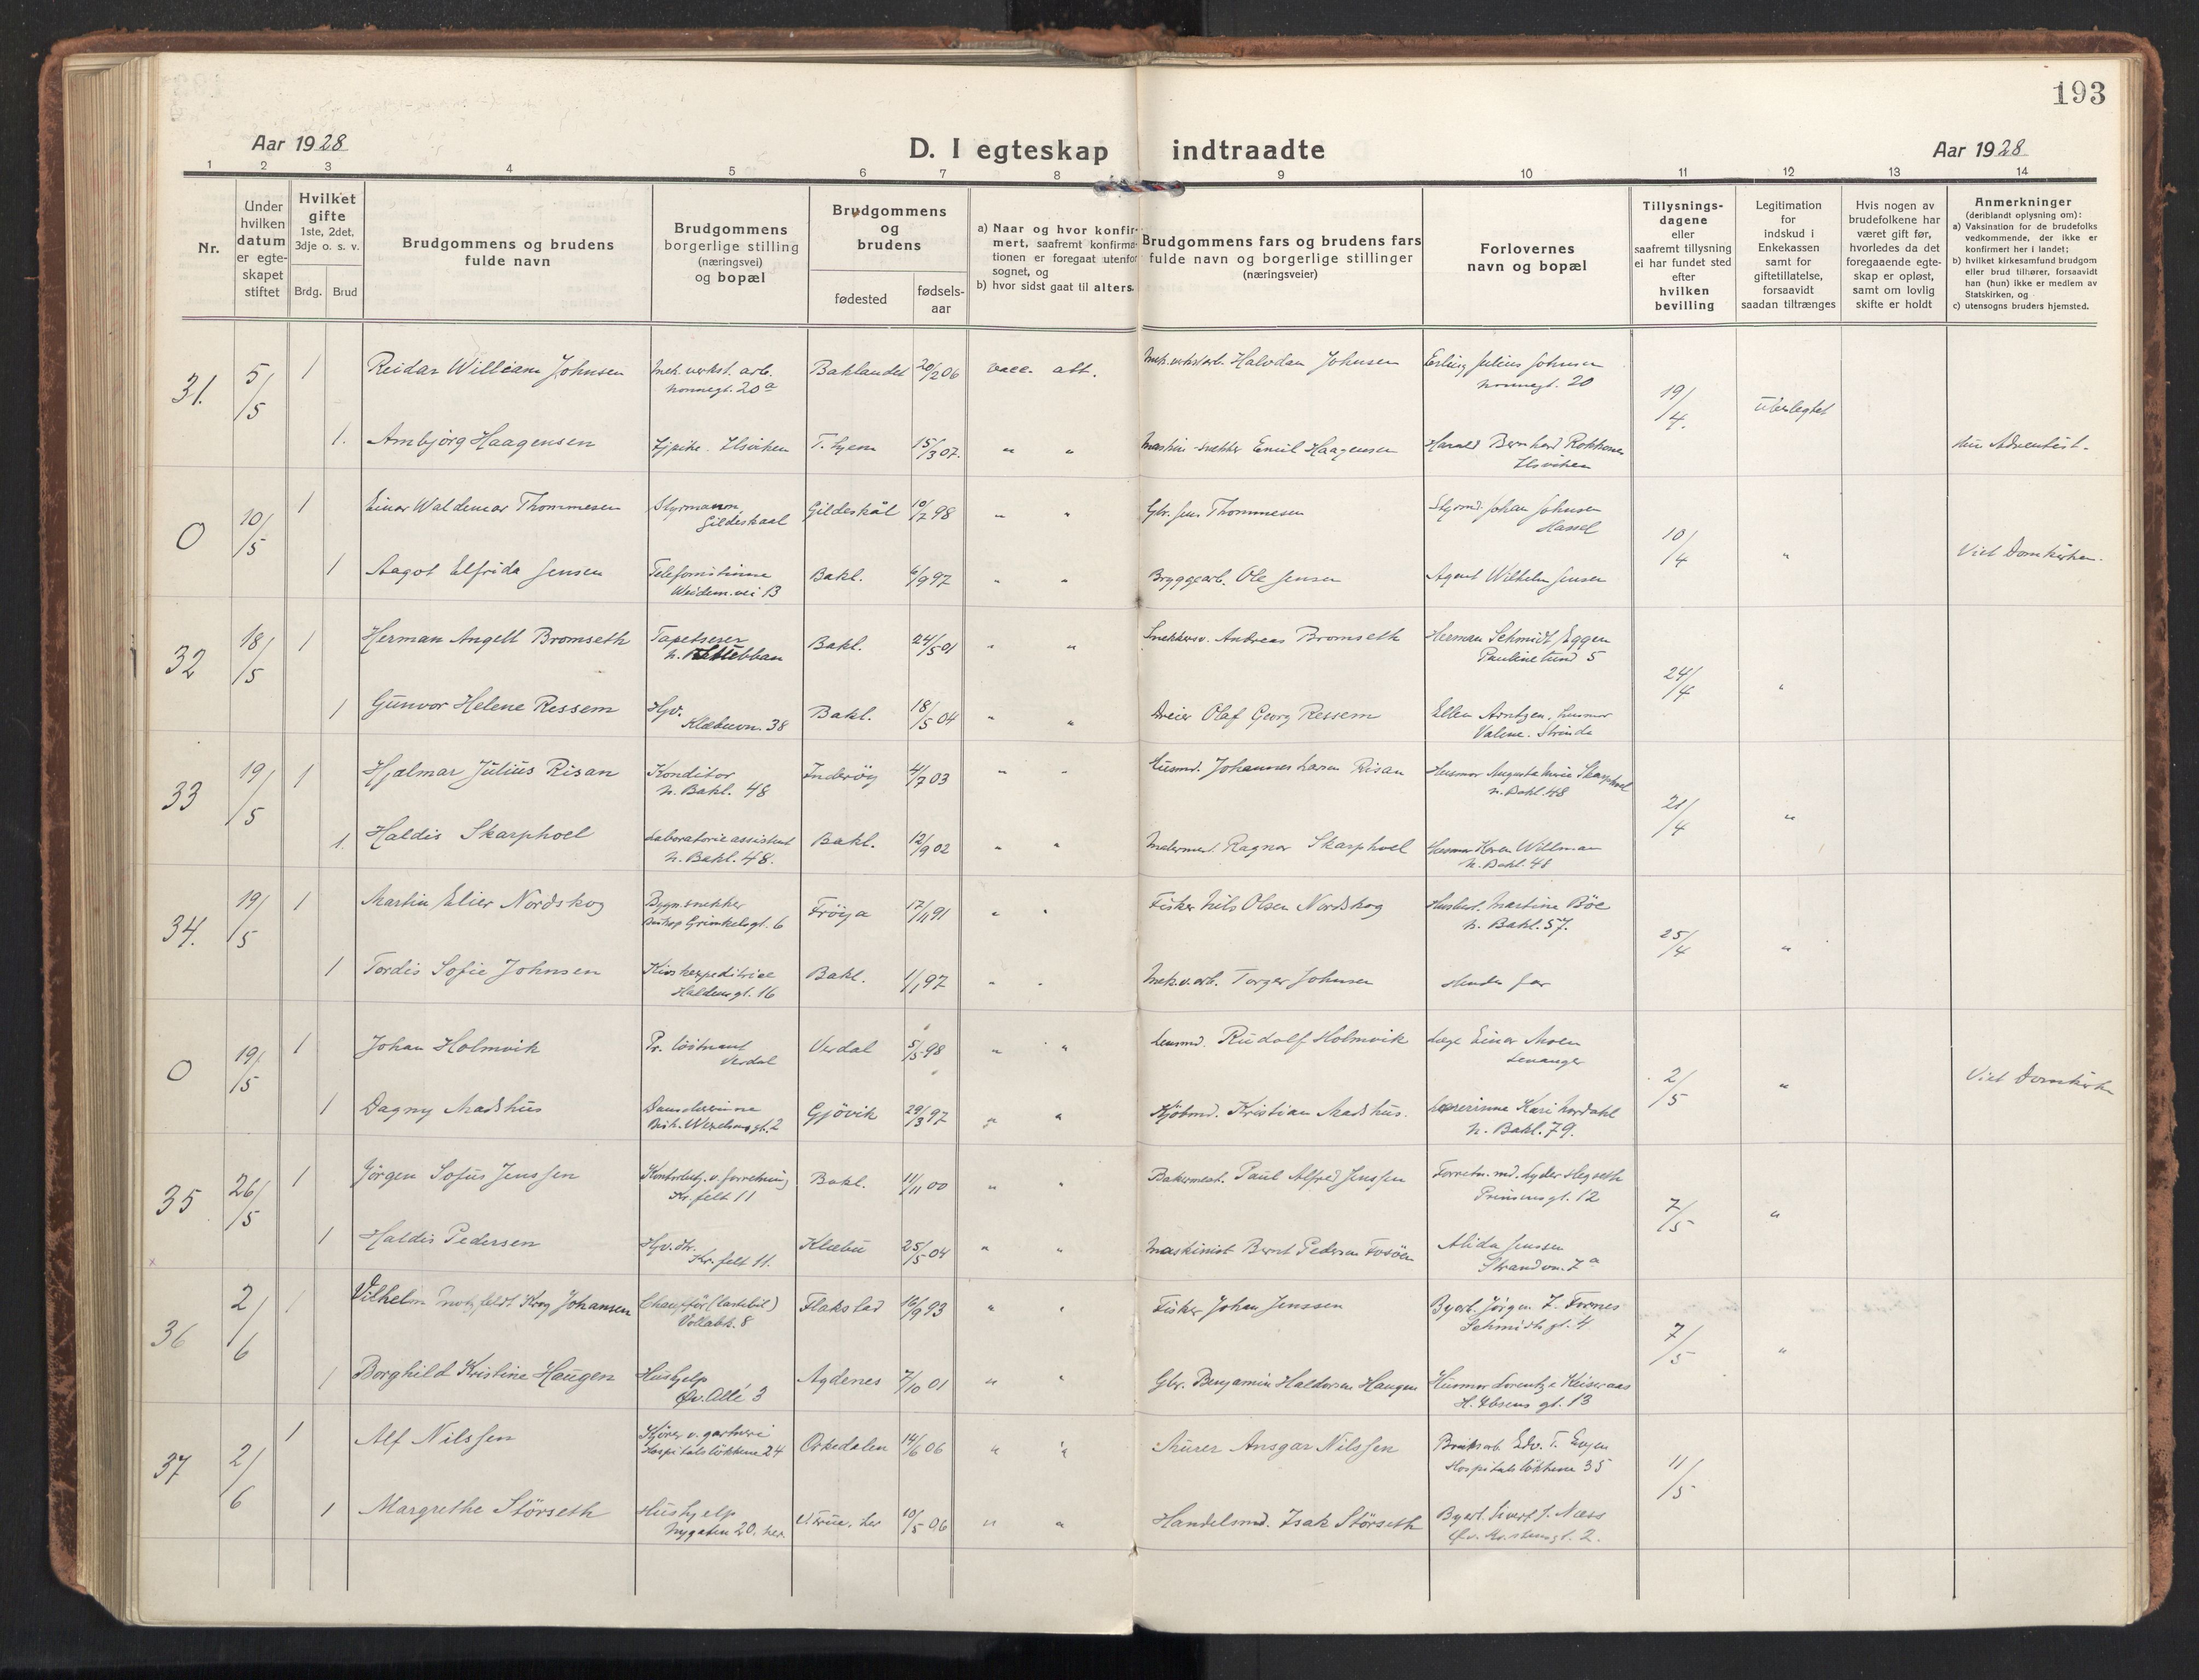 193
Aar 1928
D. I egteskap indtraadte
Aar 1928
1 2 3 4 5 6 7 8 9 10 11 12 13 14
Nr.
Under hvilken datum er egteskapet stiftet
Hvilket gifte 1ste, 2det, 3dje o. s. v.
Brdg. Brud
Brudgommens og brudens fulde navn
Brudgommens borgerlige stilling (næringsvei) og bopæl
Brudgommens og brudens
fødested
fødsels-aar
a) Naar og hvor konfirmert, saafremt konfirmationen er foregaat utenfor sognet, og
b) hvor sidst gaat til alters.
Brudgommens fars og brudens fars fulde navn og borgerlige stillinger (næringsveier)
Forlovernes navn og bopæl
Tillysnings-dagene eller saafremt tillysning ei har fundet sted efter hvilken bevilling
Legitimation for indskud i Enkekassen samt for giftetillatelse, forsaavidt saadan tiltrænges
Hvis nogen av brudefolkene har været gift før, hvorledes da det foregaaende egteskap er opløst, samt om lovlig skifte er holdt
Anmerkninger
(deriblandt oplysning om):
a) Vaksination for de brudefolks vedkommende, der ikke er konfirmert her i landet;
b) hvilket kirkesamfund brudgom eller brud tilhører, forsaavidt han (hun) ikke er medlem av Statskirken, og
c) utensogns bruders hjemsted.
31. 5/5 1 Reidar William Johnsen Mek. verkst. arb. Baklandet 20/2 06 vacc. att. Mek. verkst. arb. Halvdan Johnsen Erling Julius Johnsen
Nonnegt. 20a Nonnegt. 20
19/4
1. Arnbjørg Haagensen Ilsviken T.hjem 15/3 07. " " Maskinsnekker Emil Haagensen Harald Bernhard
Ilsviken
Adventist.
O 10/5 1 Einar Waldemar Thommesen Styrmann Gildeskål 10/2 98 " " Gbr. Jens Thommesen Styrmd. Johan Johnsen
Gildeskaal Hassel
10/4 " Viet Domkirken.
1 Aagot Elfrida Jensen Telefonistinne Bakl. 6/9 97 " " Bryggearb. Ole Jensen Agent Wilhelm Jensen
Weidem.vei 13
32 18/5 1 Herman Angell Bromseth Tapetserer Bakl. 24/5 01 " " Andreas Bromseth Herman Schmidt Eggen
Paulinelund 5
24/4 "
1 Gunvor Helene Ressem Hjv. Bakl. 18/5 04 " " Dreier Olaf Georg Ressem Ellen Arntzen, husmor
Klæbuvn. 38 Strinda
33 19/5 1 Hjalmar Julius Risan Konditor Inderøy 4/7 03 " " Husmd. Johannes Larsen Risan Husmor Augusta Marie Skarphoel
N. Bakl. 48 N. Bakl. 48
21/4 "
1. Haldis Skarphoel Laboratorieassistent Bakl. 12/9 02 " " Malermest. Ragnar Skarphoel Husmor Karen Willman
N. Bakl. 48. N. Bakl. 48
34. 19/5 1 Martin Elier Nordskog Bygn.snekker Frøya 17/11 91 " " Fisker Nils Olsen Nordskog Martine Bøe
Biskop Grimkelsgt. 6 N. Bakl. 57.
25/4 "
1 Tordis Sofie Johnsen Kioskexpeditrice Bakl. 1/1 97 " " Mek.v.arb. Torger Johnsen Hendes far
Haldensgt. 16
O 19/5 1 Johan Holmvik Pr. løitnant Verdal 5/5 98 " " Lensmd. Rudolf Holmvik Læge Einar Moen
Verdal Levanger
2/5 " Viet Domkirken
1 Dagny Madshus Gjøvik 29/3 97 " " Kjøbmd. Kristian Madshus. Lærerinne Kari Nordahl
Bisk. Wexelsensgt. 2 N. Bakl. 79.
35 26/5 1 Jørgen Sofus Jenssen Bakl. 11/11 00 " " Bakermest. Paul Alfred Jenssen Forretn.md. Lyder Hegseth
Kr. felt 11 Prinsensgt. 12
7/5 "
1 Haldis Pedersen Hjv. dtr. Klæbu 25/5 04 " " Maskinist Bernt Pedersen Fosøen Alida Jenssen
Kr. felt 11. Strandvn. 7a
36 2/6 1 Vilhelm Motzfeldt Krog Johansen Chauffør (lastebil) Flakstad 16/9 93 " " Fisker Johan Jenssen Byarb. Jørgen Z. Fornes
Vollabk. 8 Schmidts gt. 4
7/5 "
1 Borghild Kristine Haugen Hushjelp Agdenes 7/10 01 " " Gbr. Benjamin Haldorsen Haugen Husmor Lorentze Keiseraas
Øv. Allé 3 H. Ibsens gt. 13
37 2/6 1 Alf Nilssen Kjører v. gartneri Orkedalen 14/6 06 " " Murer Ansgar Nilssen Bruksarb. Edv. T. Engen
Hospitalsløkkene 24 Hospitalsløkkene 35
11/5
1 Margrethe Störseth Hushjelp V. Frue, her 10/5 06 " " Handelsmd. Isak Störseth Byarb. Sivert J. Næss
Nygaten 20, her.